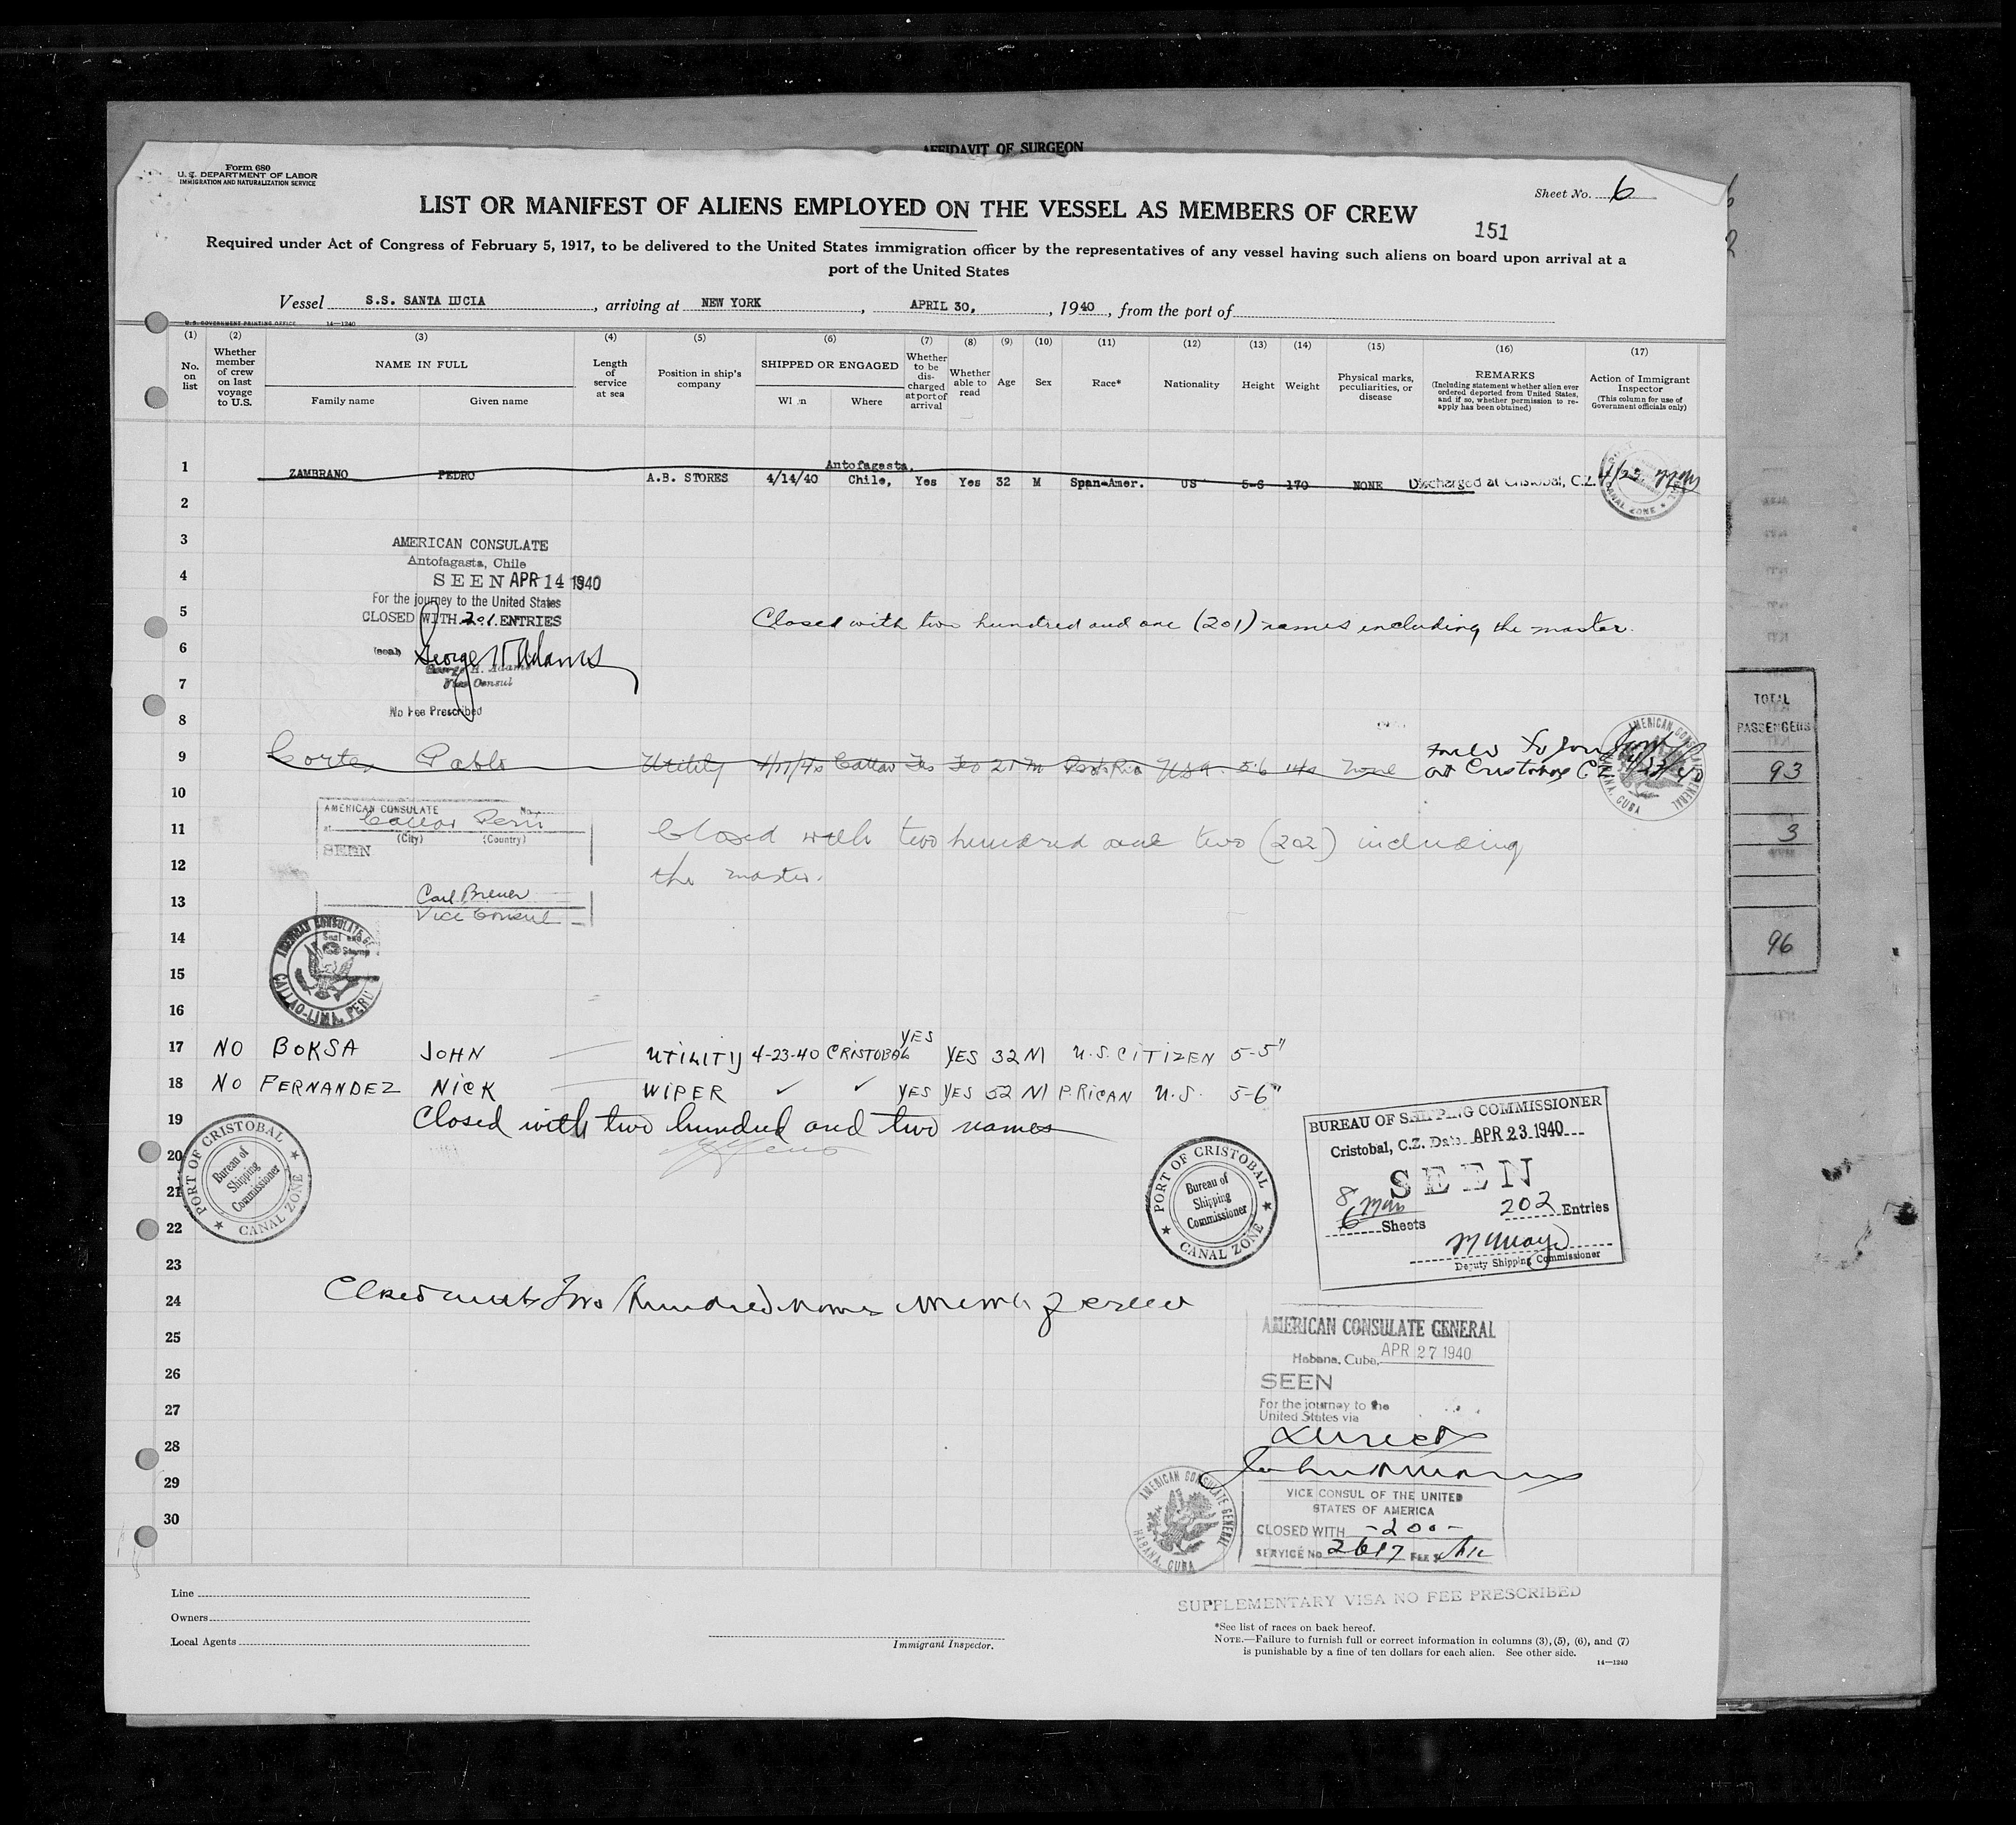 AFFIDAVIT OF SURGEON
Form 680
U. S. DEPARTMENT OF LABOR
IMMIGRATION AND NATURALIZATION SERVICE
Sheet No. 6
LIST OR MANIFEST OF ALIENS EMPLOYED ON THE VESSEL AS MEMBERS OF CREW
151
Required under Act of Congress of February 5, 1917, to be delivered to the United States immigration officer by the representatives of any vessel having such aliens on board upon arrival at a
port of the United States
Vessel S.S. SANTA LUCIA, arriving at NEW YORK, APRIL 30, 1940, from the port of
U. S. GOVERNMENT PRINTING OFFICE 14—1240
(1) (2) (3) (4) (5) (6) (7) (8) (9) (10) (11) (12) (13) (14) (15) (16) (17)
No. on list
Whether member of crew on last voyage to U.S.
NAME IN FULL
Family name Given name
Length of service at sea
Position in ship's company
SHIPPED OR ENGAGED
When Where
Whether to be discharged at port of arrival
Whether able to read
Age
Sex
Race*
Nationality
Height
Weight
Physical marks, peculiarities, or disease
REMARKS
(Including statement whether alien ever ordered deported from United States, and if so, whether permission to reapply has been obtained)
Action of Immigrant Inspector
(This column for use of Government officials only)
Antofagasta.
1 ZAMBRANO PEDRO A.B. STORES 4/14/40 Chile, Yes Yes 32 M Span-Amer. US 5-6 170 NONE Discharged at Cristobal, C.Z. 4/23
CANAL ZONE
2
3
AMERICAN CONSULATE
Antofagasta, Chile
4
SEEN APR 14 1940
For the journey to the United States
5
CLOSED WITH 201 ENTRIES
Closed with two hundred and one (201) names including the master.
6
(seal) George H Adams
George H. Adams
Vice Consul
7
No Fee Prescribed
8
9 Cortez Pablo Utility 4/17/40 Callao Yes Yes 21 M Porto Rico USA. 5'6 None
at Cristobal C.Z. 4/23/40
AMERICAN CONSULATE GENERAL
HABANA, CUBA
10
AMERICAN CONSULATE No.
at Callao Peru
(City) (Country)
SEEN
11
Closed with two hundred and two (202) including
12
the master.
13
Carl Breuer
Vice Consul
14
AMERICAN CONSULATE GE
CALLAO-LIMA, PERU
15
16
17 NO BOKSA JOHN — UTILITY 4-23-40 CRISTOBAL YES YES 32 M U.S. CITIZEN 5-5"
18 NO FERNANDEZ NICK — WIPER ✓ ✓ YES YES 52 M P.RICAN U.S. 5-6"
19 Closed with two hundred and two names
20
21
22
23
24 Closed with Two Hundred names members of crew
25
26
27
28
29
30
PORT OF CRISTOBAL
Bureau of Shipping Commissioner
CANAL ZONE
PORT OF CRISTOBAL
Bureau of Shipping Commissioner
CANAL ZONE
BUREAU OF SHIPPING COMMISSIONER
Cristobal, C.Z. Date APR 23 1940
SEEN
6 Sheets 202 Entries
Deputy Shipping Commissioner
AMERICAN CONSULATE GENERAL
Habana, Cuba. APR 27 1940
SEEN
For the journey to the
United States via
Direct
VICE CONSUL OF THE UNITED
STATES OF AMERICA
CLOSED WITH -200-
SERVICE No. 2617 FEE $
AMERICAN CONSULATE GENERAL
HABANA, CUBA
SUPPLEMENTARY VISA NO FEE PRESCRIBED
Line
Owners
Local Agents
Immigrant Inspector.
*See list of races on back hereof.
NOTE.—Failure to furnish full or correct information in columns (3), (5), (6), and (7)
is punishable by a fine of ten dollars for each alien. See other side.
14—1240
TOTAL
PASSENGERS
93
3
96